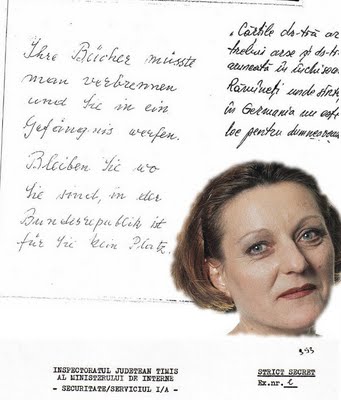 Ihre Bücher müsste
man verbrennen
und Sie in ein
Gefängnis werfen.
Bleiben Sie wo
Sie sind, in der
Bundesrepublik ist
für Sie kein Platz.
"Cărțile dv-tră ar
trebui arse și dv-tră
aruncată în închisoare
Rămîneți unde sînteți
în Germania nu este
loc pentru dumneavoastră
INSPECTORATUL JUDETEAN TIMIS
AL MINISTERULUI DE INTERNE
- SECURITATE/SERVICIUL I/A -
STRICT SECRET
Ex.nr. 2